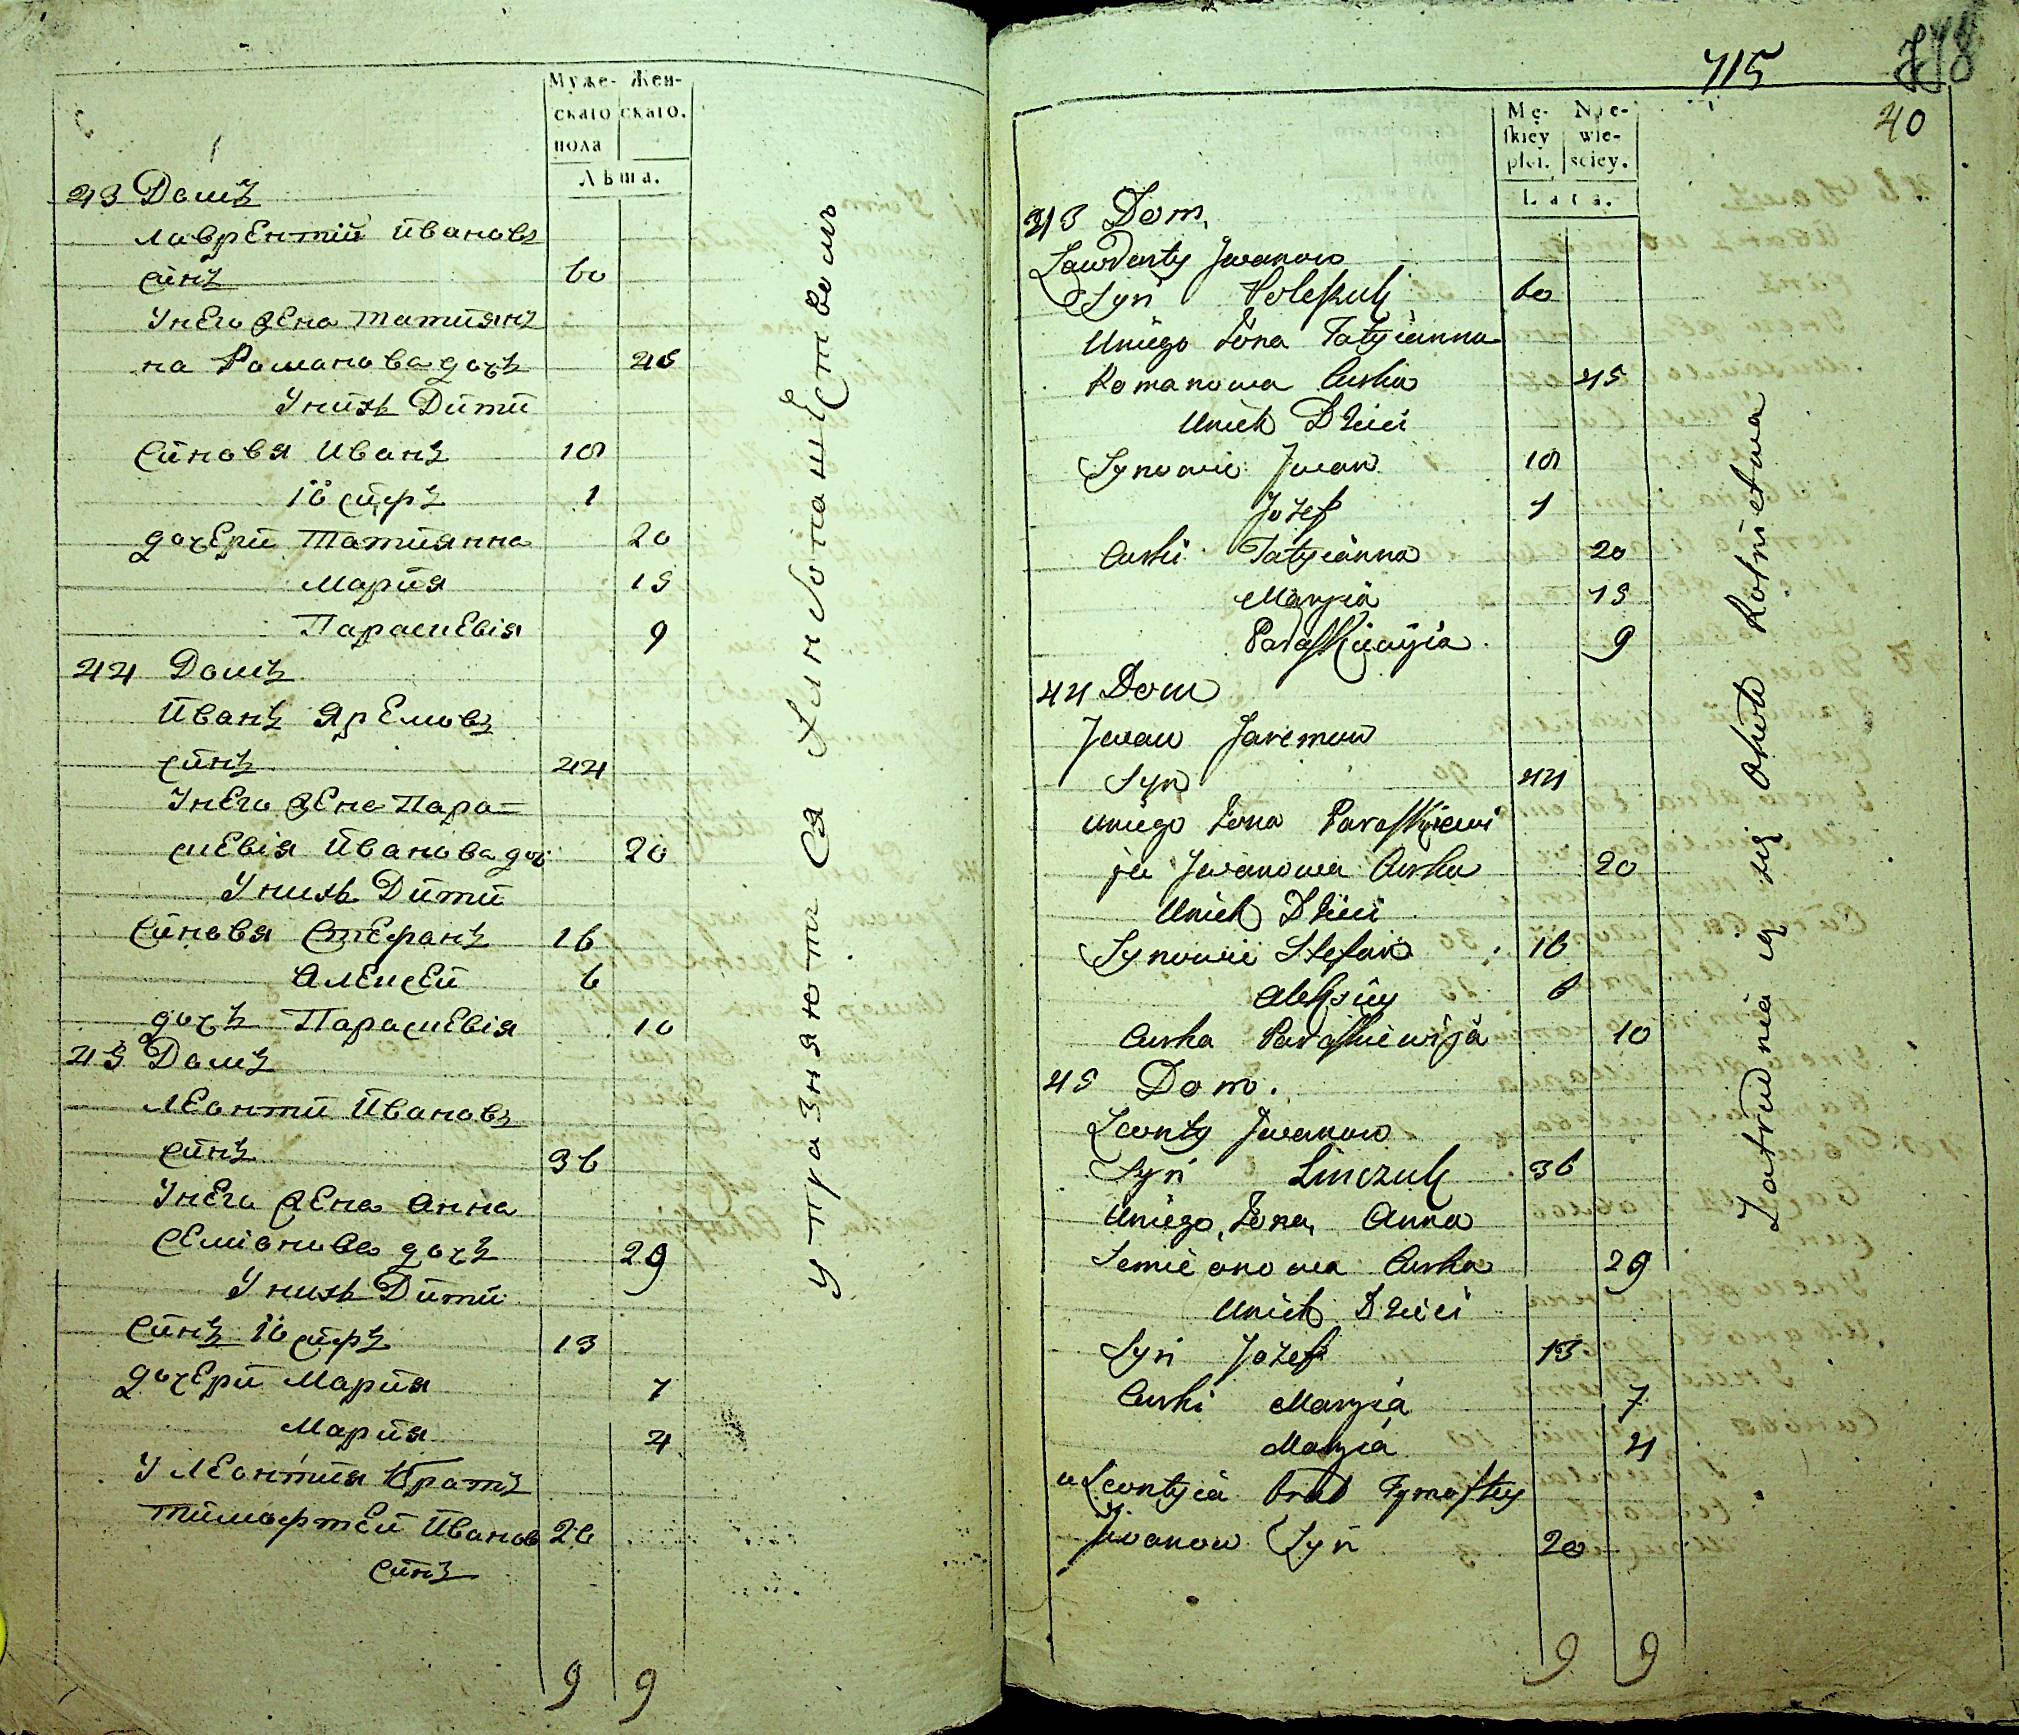 Муже- Жен-
скаго скаго.
пола
Лѣта.
43 Домъ
Лаврентій Ивановъ
Синъ 60
Унего Жена Татиян
на Романова дочъ 45
Унихъ Дити
Синовя Иванъ 18
Іосифъ 1
дочери Татиянна 20
Мария 15
Параскевія 9
44 Домъ
Иванъ Яремовъ
Синъ 44
Унего Жена Пара-
скевія Иванова доч 20
Унихъ Дити
Синовя Стефанъ 16
Алексей 6
дочъ Параскевія 10
45 Домъ
Леонтий Ивановъ
Синъ 36
Унего Жена Анна
Семіонова дочъ 29
Унихъ Дити
Синъ Іосифъ 13
дочери Мария 7
Мария 4
У Леонтия Братъ
Тимофтей Иванов 26
Синъ
9 9
упразняются хлибопашеством
715
40
Mę- Nie-
skiey wie-
płci. sciey.
Lata.
43 Dom.
Lawrenty Jwanow
Syn Poleszuk 60
Uniego Żona Tatyianna
Romanowa Curka 45
Unich Dzieci
Synowie Jwan 18
Jozef 1
Curki Tatyianna 20
Maryia 15
Paraskiewyia 9
44 Dom
Jwan Jaremow
Syn 44
Uniego Żona Paraskiewi
ja Jwanowa Curka 20
Unich Dzieci
Synowie Stefan 16
Aleksiey 6
Curka Paraskiewija 10
45 Dom.
Leonty Jwanow
Syn Linczuk 36
Uniego Żona Anna
Semienowa Curka 29
Unich Dzieci
Syn Jozef 13
Curki Maryia 7
Maryia 4
u Leontyia brat Tymoftey
Jwanow Syn 26
9 9
Zatrudnia ią się około Rolnictwa